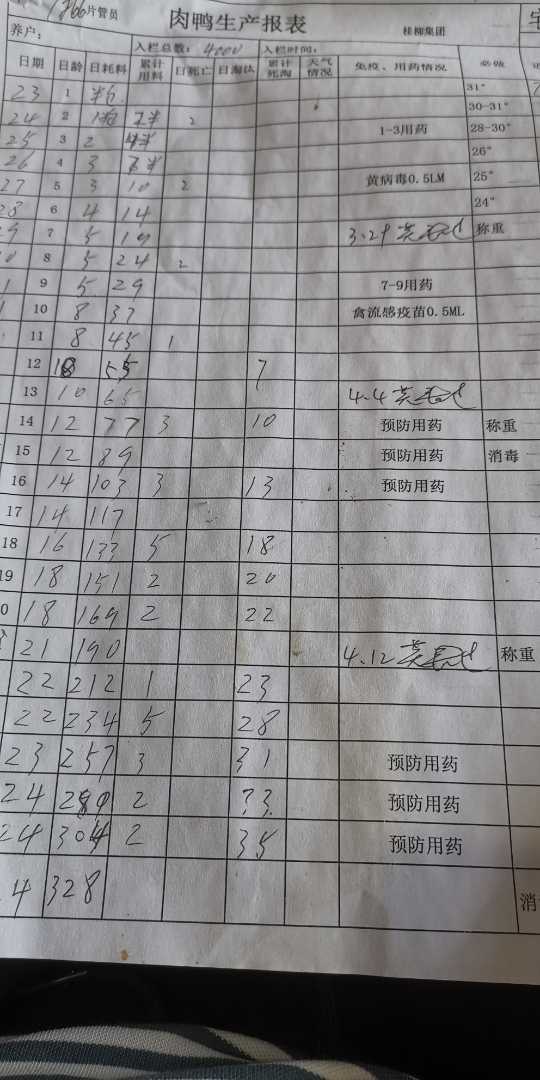 1366片管员
肉鸭生产报表
桂柳集团
养户:
入栏总数: 4000 入栏时间:
日期 日龄 日耗料 累计用料 日死亡 日淘汰 累计死淘 天气情况 免疫、用药情况 必做
23 1 半包 31°
24 2 1包 2 30-31°
25 3 2 1-3用药 28-30°
26 4 3 26°
27 5 3 10 2 黄病毒0.5LM 25°
28 6 4 14 24°
29 7 5 19 3.29 称重
8 5 24 2
9 5 29 7-9用药
10 8 37 禽流感疫苗0.5ML
11 8 45 1
12 55 7
13 10 65 4.4
14 12 77 3 10 预防用药 称重
15 12 89 预防用药 消毒
16 14 103 3 13 预防用药
17 14 117
18 16 133 5 18
19 18 151 2 20
0 18 169 2 22
21 190 4.12 称重
22 212 1 23
22 234 5 28
23 257 3 31 预防用药
24 280 2 33 预防用药
24 304 2 35 预防用药
4 328 消